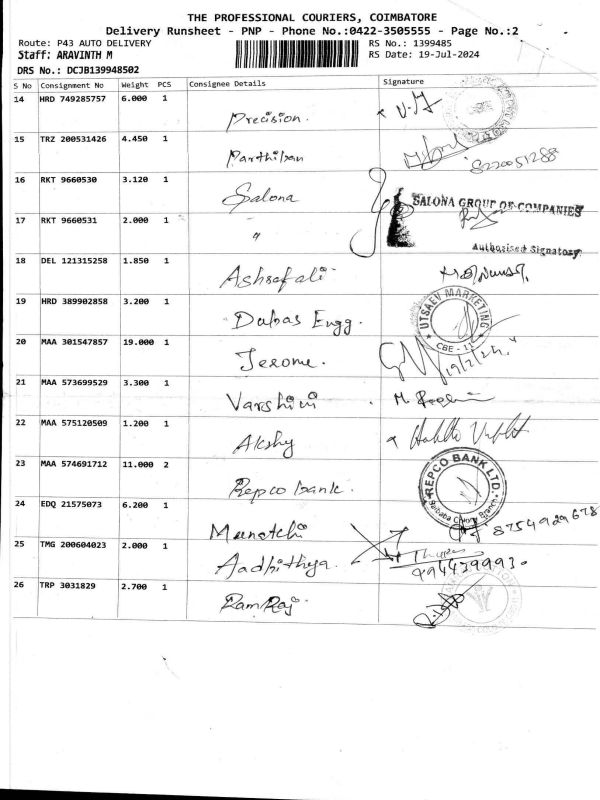 THE PROFESSIONAL COURIERS, COIMBATORE
Delivery Runsheet - PNP - Phone No.:0422-3505555 - Page No.:2
Route: P43 AUTO DELIVERY RS No.: 1399485
Staff: ARAVINTH M RS Date: 19-Jul-2024
DRS No.: DCJB139948502
S No Consignment No Weight PCS Consignee Details Signature
14 HRD 749285757 6.000 1 Precision.
15 TRZ 200531426 4.450 1 Parthiban 8220051288
16 RKT 9660530 3.120 1 Salona SALONA GROUP OF COMPANIES
17 RKT 9660531 2.000 1 " Authorised Signatory
18 DEL 121315258 1.850 1 Ashrafali
19 HRD 389902858 3.200 1 Dabas Engg. UTSAEV MARKETING CBE - 11
20 MAA 301547857 19.000 1 Jerome.
21 MAA 573699529 3.300 1 Varshini
22 MAA 575120509 1.200 1 Akshy
23 MAA 574691712 11.000 2 Repco bank. REPCO BANK LTD. Saibaba Colony Branch
24 EDQ 21575073 6.200 1 Munotchi 8754929678
25 TMG 200604023 2.000 1 Aadhithya.
26 TRP 3031829 2.700 1 RamRaj